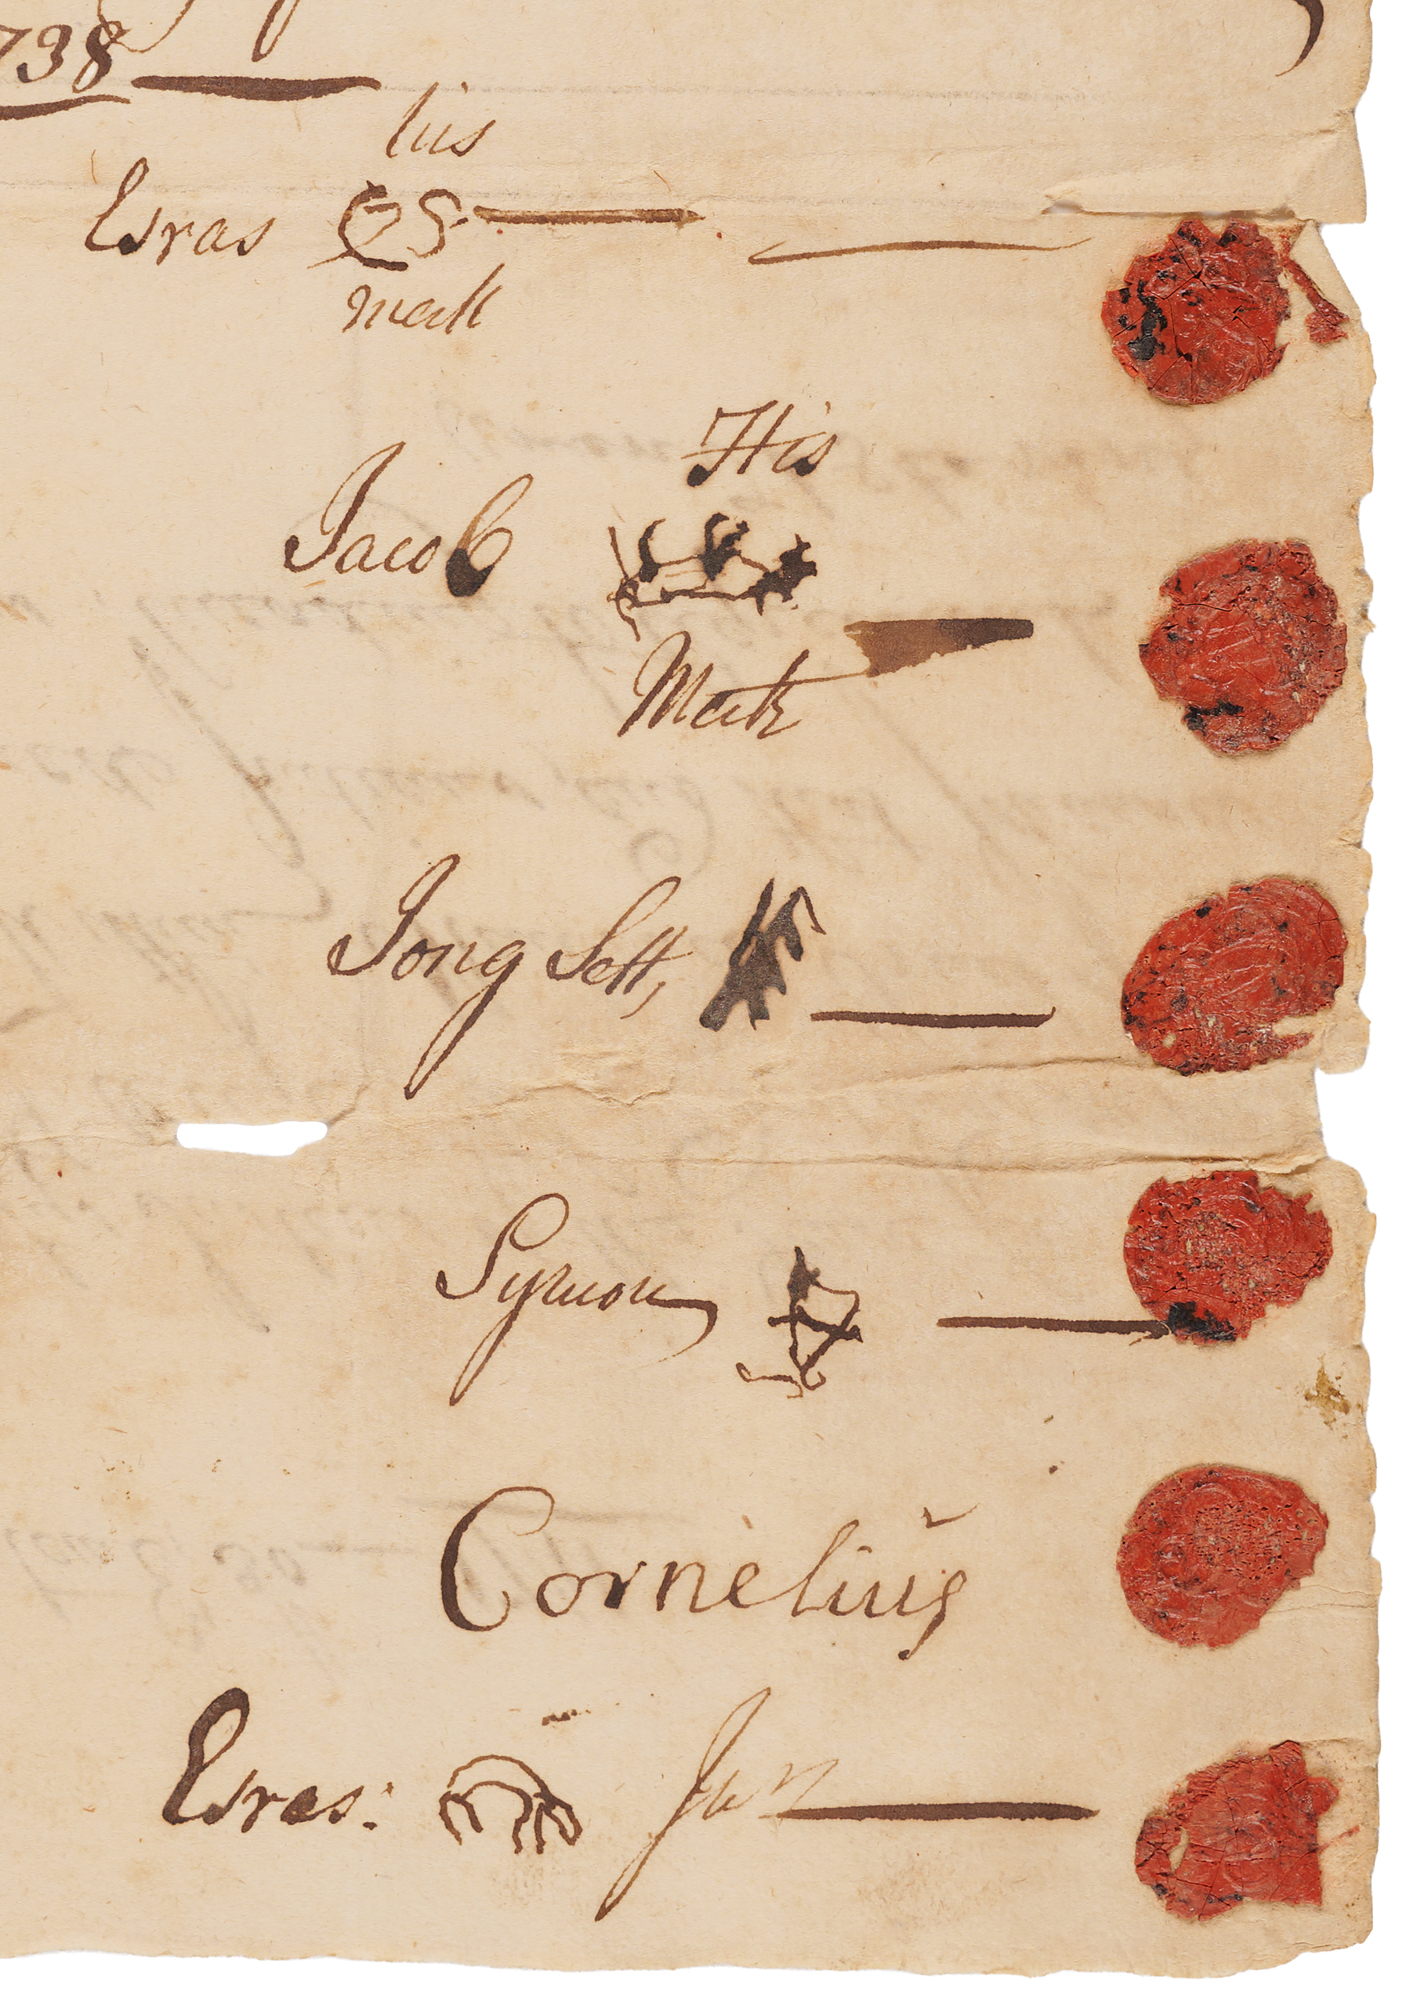 738
his
Esras ES
mark
His
Jacob
Mark
Jong Sett,
Symon
Cornelius
Esras: Jun